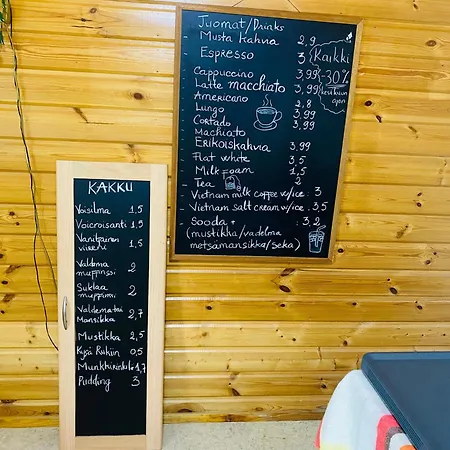 Juomat/Drinks
Musta kahvia 2,9
Espresso 3
Kaikki
-30%
Cappuccino 3,99
Latte macchiato 3,99
Americano 2,8
Lungo 3,99
Cortado 3,99
Machiato
Erikoiskahvia 3,99
Flat white 3,5
Milk foam 1,5
Tea 2
Vietnam milk coffee w/ice: 3
Vietnam salt cream w/ice: 3,5
Sooda: 3,2
(mustikka/vadelma
metsämansikka/seka)
KAKKU
Voisilma 1,5
Voicroisanti 1,5
Vanilja 1,5
viineri
Vadelma 2
muppinssi
Suklaa 2
muppinssi
2,7
Mansikka
Mustikka 2,5
0,5
1,7
Pudding 3